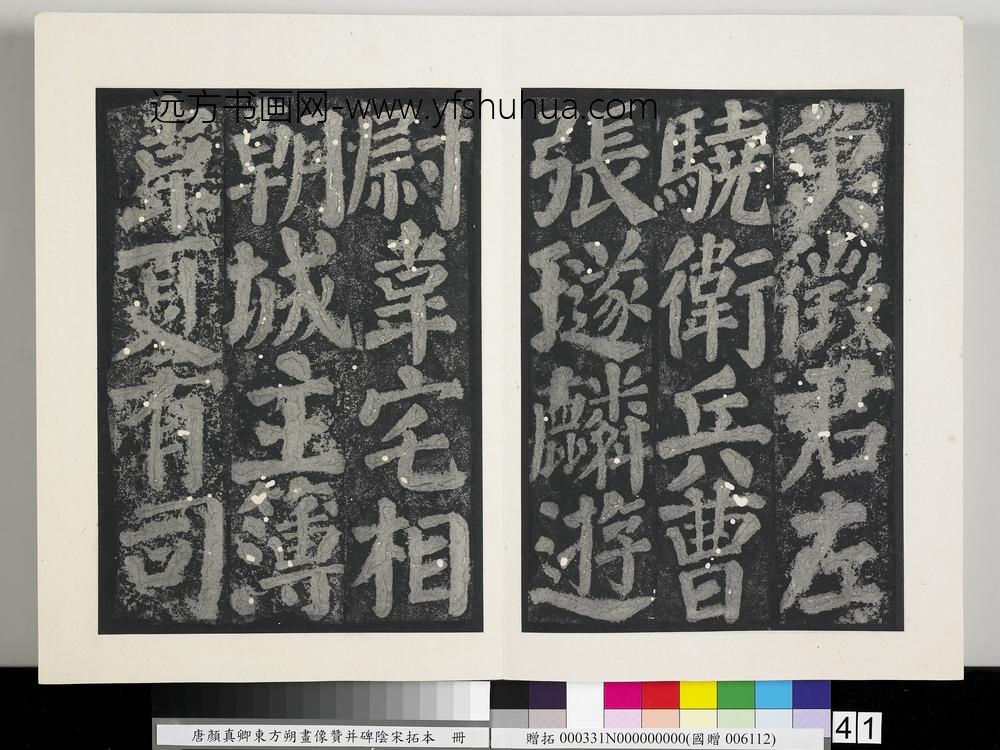 远方书画网-www.yfshuhua.com
魚徵君左
驍衛兵曹
張璲麟遊
尉韋宅相
朝城主簿
韋夏有司
唐顏真卿東方朔畫像贊并碑陰宋拓本 冊
贈拓 000331N000000000(國贈 006112)
41